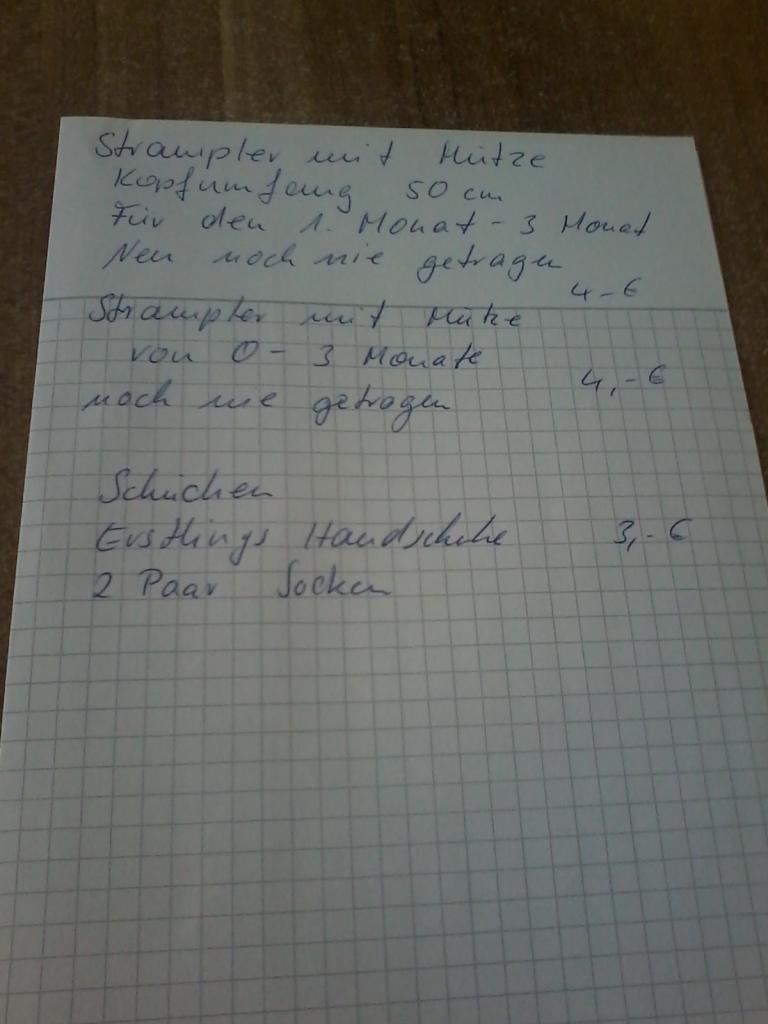 Strampler mit Mütze
Kopfumfang 50 cm
Für den 1. Monat - 3 Monat
Neu noch nie getragen
4 - €
Strampler mit Mütze
von 0 - 3 Monate
4,- €
noch nie getragen
Schüchen
Erstlings Handschuhe 3,- €
2 Paar Socken